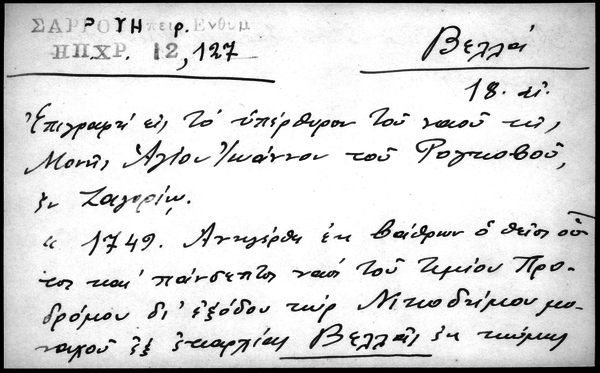 ΣΑΡΡΟΥ Ἠπειρ. Ἐνθυμ
Βελλᾶ
ΗΠΧΡ. 12, 127
18. αἰ.
Ἐπιγραφὴ εἰς τὸ ὑπέρθυρον τοῦ ναοῦ τῆς
Μονῆς Ἁγίου Ἰωάννου τοῦ Ρογκοβοῦ,
ἐν Ζαγορίῳ.
"1749. Ἀνηγέρθη ἐκ βάθρων ὁ θεῖος οὗ
τος καὶ πάνσεπτος ναὸς τοῦ τιμίου Προ-
δρόμου δι' ἐξόδου τῶν Νικοδήμου μο-
ναχοῦ ἐξ ἐπαρχίας Βελλᾶς ἐκ κώμης